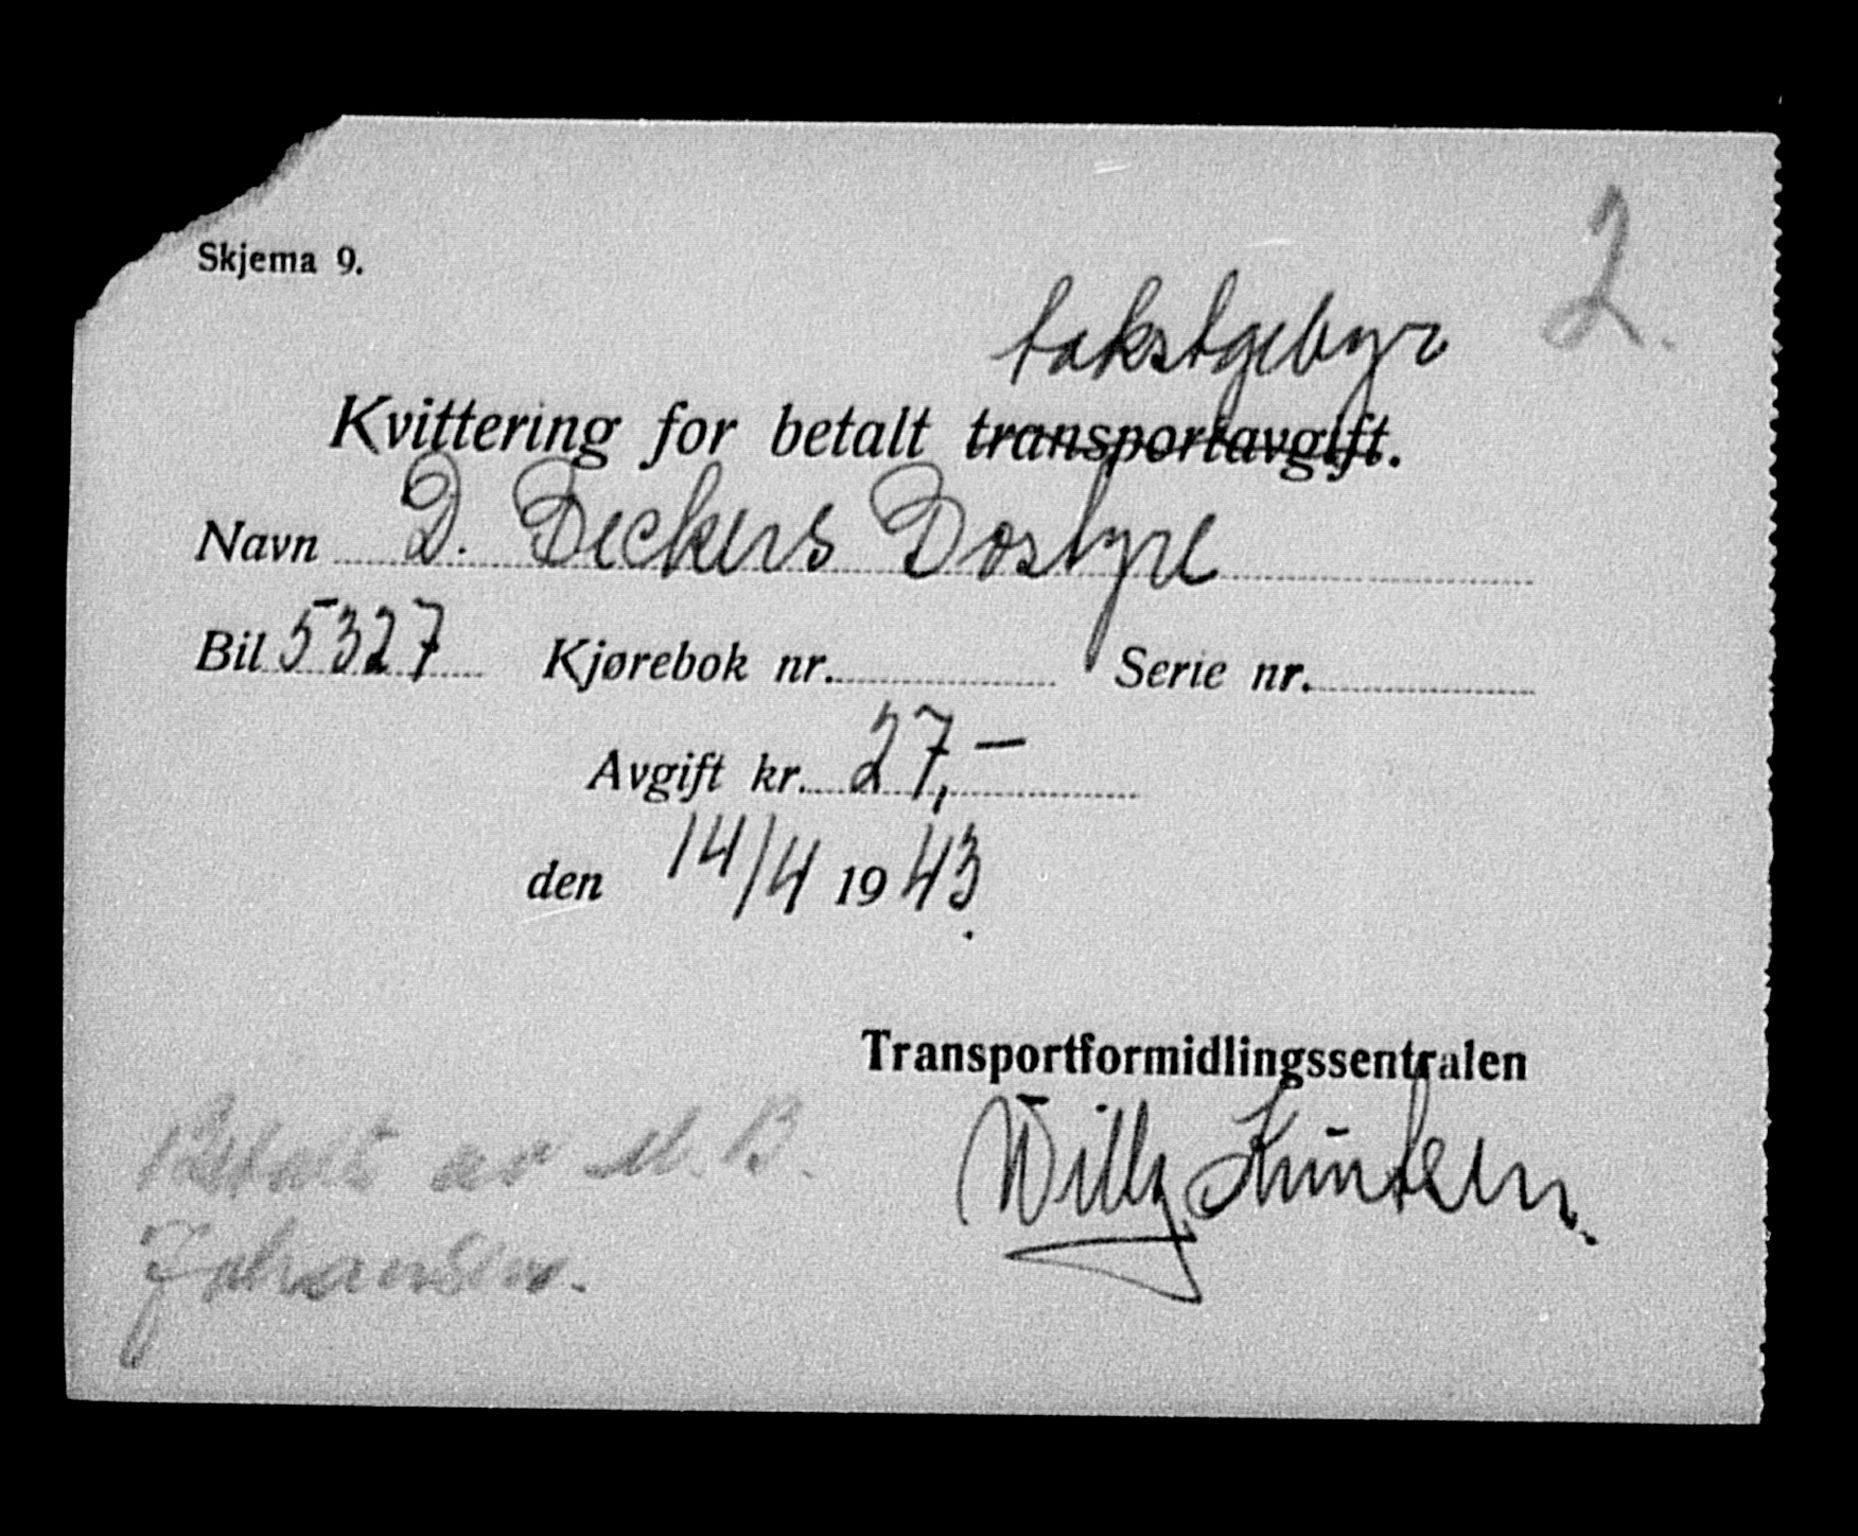 2.
Skjema 9.
takstgebyr
Kvittering for betalt transportavgift.
Navn D. Beckers Bostyre
Bil 5327 Kjørebok nr. Serie nr.
Avgift kr. 27,-
den 14/4 1943.
Transportformidlingssentralen
Willy
Betalt av M. B.
Johansen.